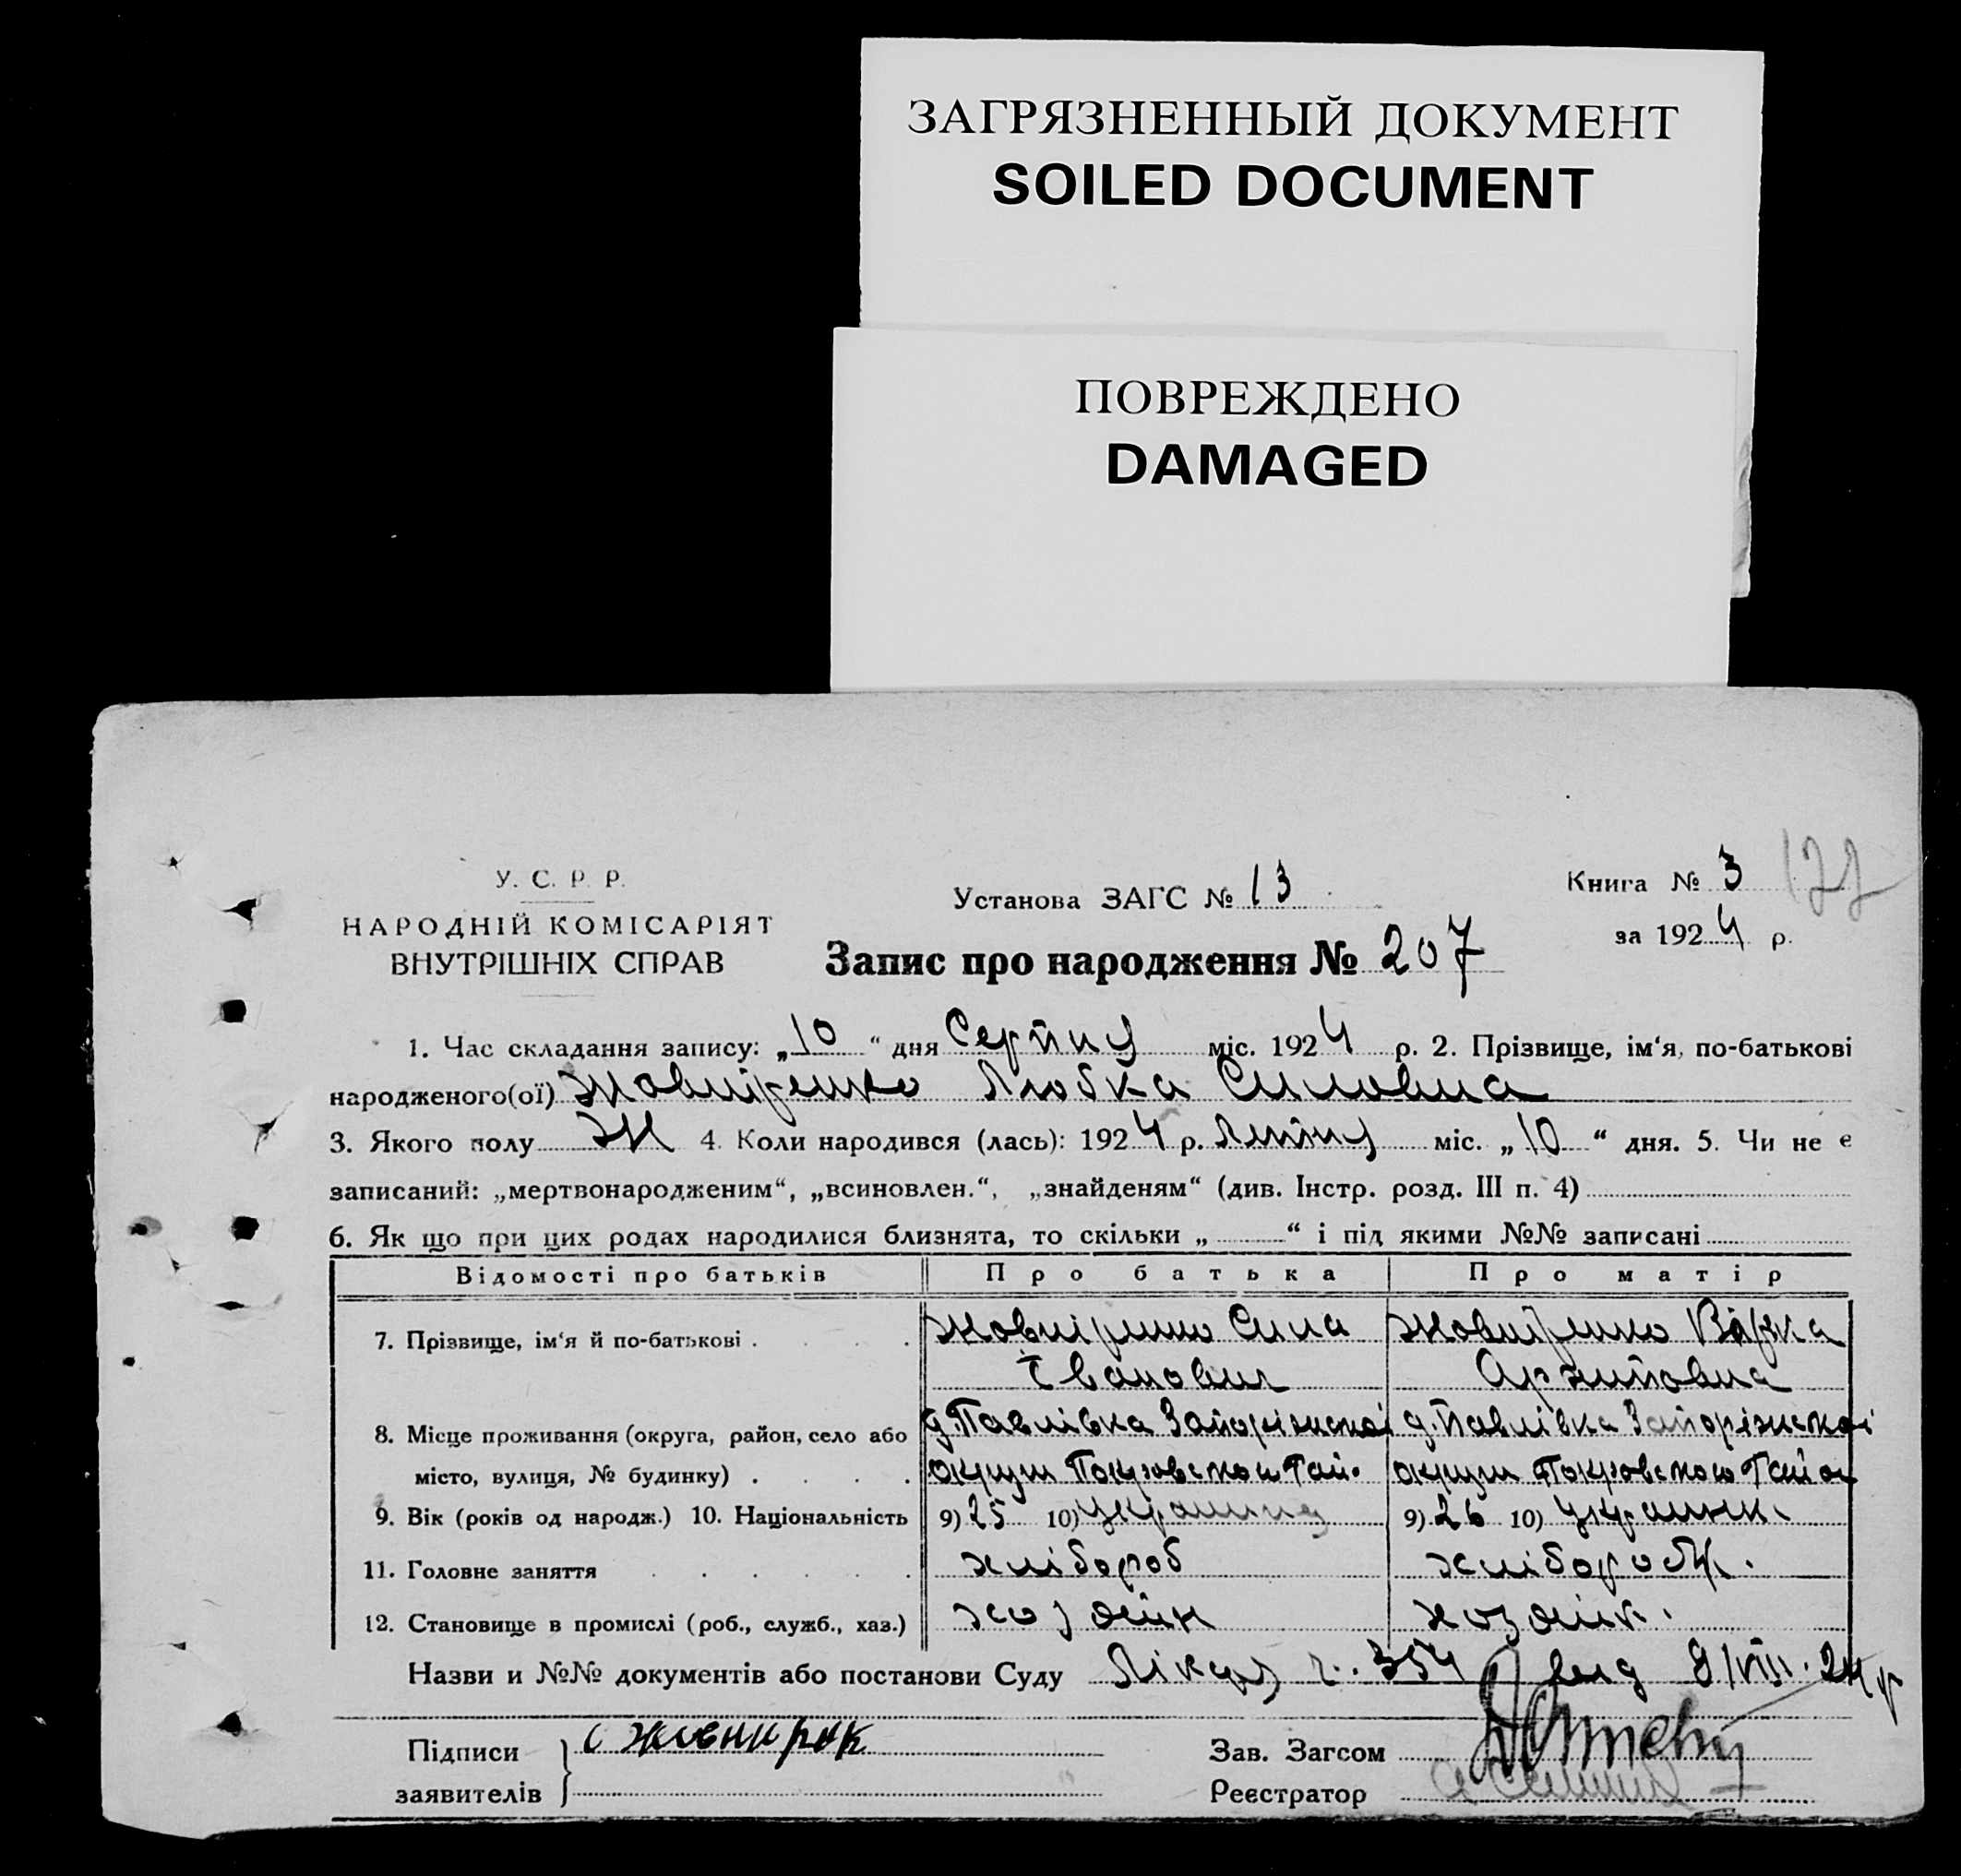 ЗАГРЯЗНЕННЫЙ ДОКУМЕНТ
SOILED DOCUMENT
ПОВРЕЖДЕНО
DAMAGED
У. С. Р. Р.
НАРОДНІЙ КОМІСАРІЯТ
ВНУТРІШНІХ СПРАВ
Установа ЗАГС № 13
Книга № 3
за 1924 р.
Запис про народження № 207
1. Час складання запису: „10“ дня Серпня міс. 1924 р. 2. Прізвище, ім‘я, по-батькові
народженого(ої) Жовніренко Любка Силовна
3. Якого полу Ж 4. Коли народився (лась): 1924 р. Липня міс. „10“ дня. 5. Чи не є
записаний: „мертвонародженим“, „всиновлен.“, „знайденям“ (див. Інстр. розд. III п. 4)
6. Як що при цих родах народилися близнята, то скільки „ “ і під якими №№ записані
Відомості про батьків Про батька Про матір
7. Прізвище, ім‘я й по-батькові . . . . Жовніренко Сила Жовніренко Варка
Іванович Архиповна
8. Місце проживання (округа, район, село або д. Павлівка Запоріжської д. Павлівка Запоріжської
місто, вулиця, № будинку) . . . . округи Покровського Рай. округи Покровського Район
9. Вік (років од народж.) 10. Національність 9) 25 10) Українец 9) 26 10) Україник.
11. Головне заняття . . . . . . хлібороб хлібороб.
12. Становище в промислі (роб., служб., хаз.) хозяїн хозяїк.
Назви и №№ документів або постанови Суду Лікар. ч. 354 від 9/VIII. 24 р
Підписи
заявителів
Зав. Загсом
Реєстратор